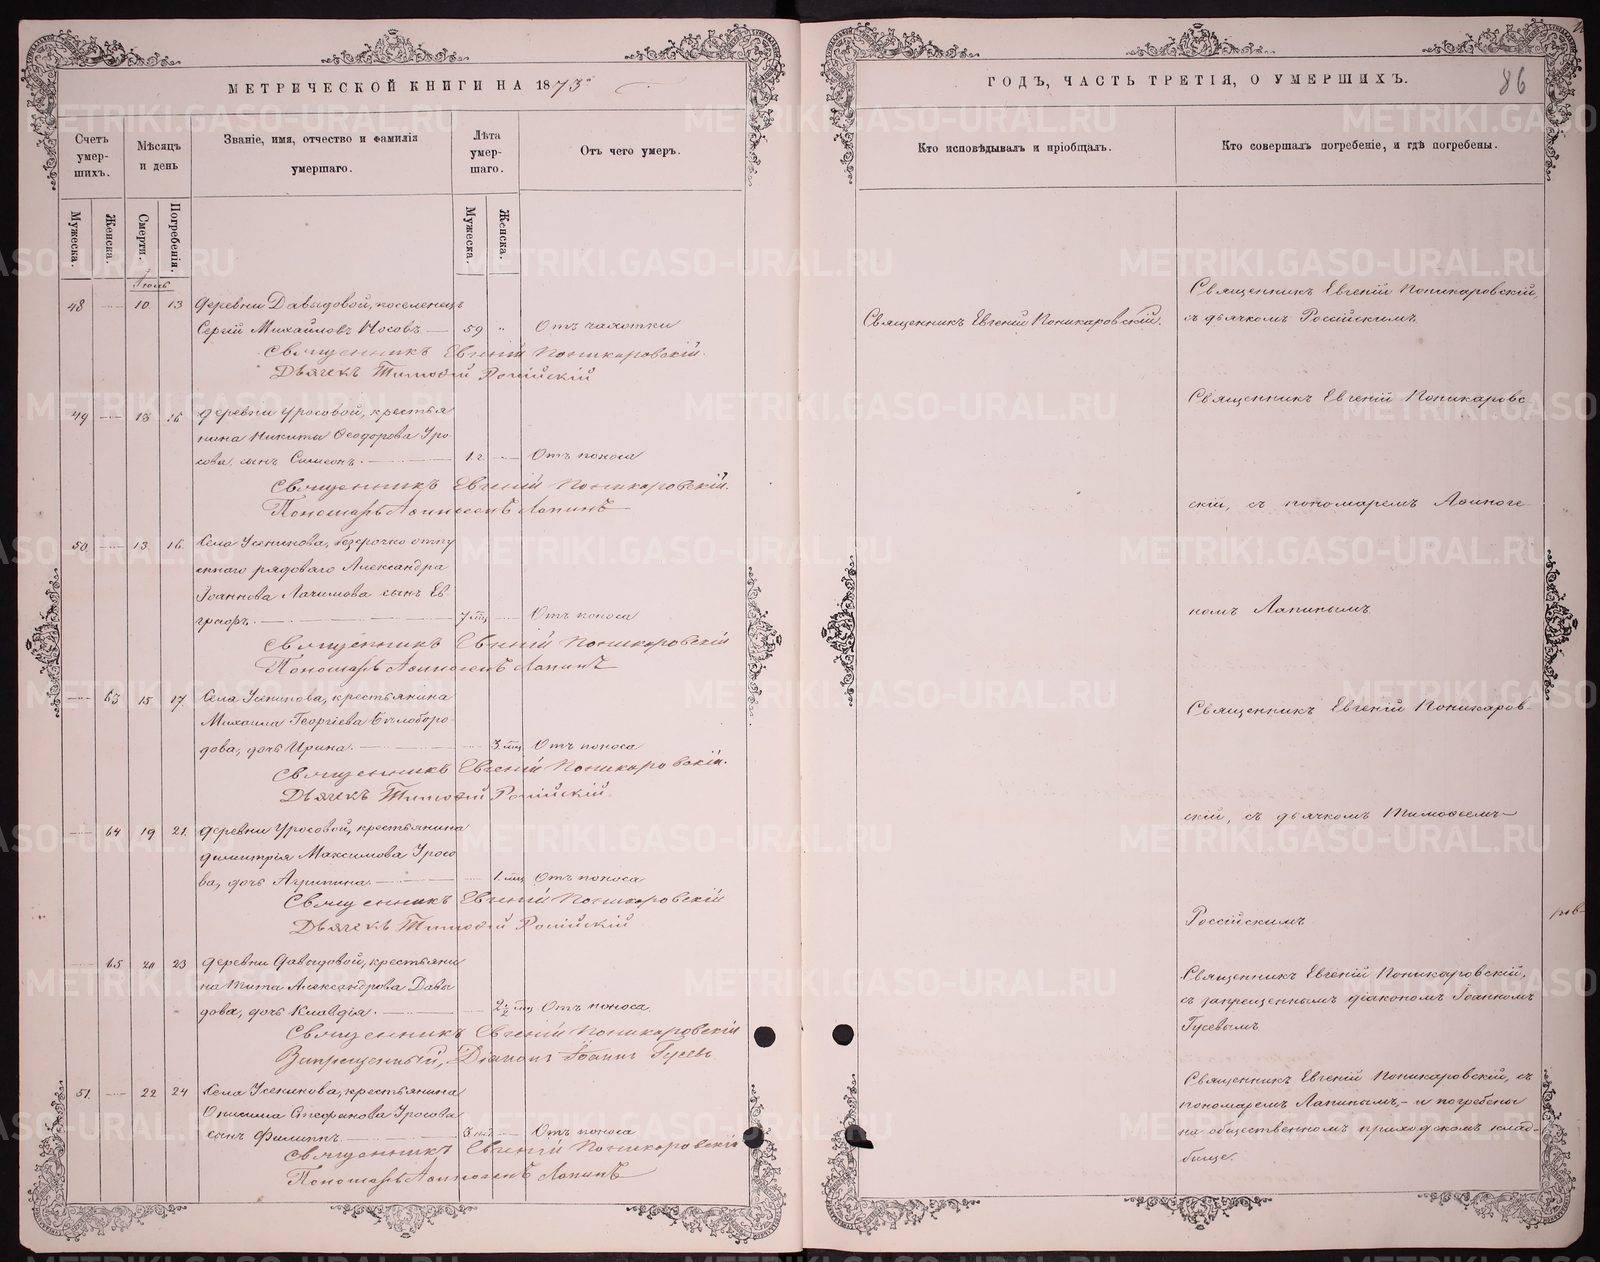 МЕТРИЧЕСКОЙ КНИГИ НА 1873й
Счетъ умер-шихъ.
Мѣсяцъ и день
Званіе, имя, отчество и фамилія умершаго.
Лѣта умер-шаго.
Отъ чего умеръ.
Мужеска.
Женска.
Смерти.
Погребенія.
Мужеска.
Женска.
Іюль
48 10 13 Деревни Давыдовой, поселенецъ
Сергій Михайловъ Носовъ 59 " Отъ чахотки
Священникъ Евгеній Поникаровскій.
Дьячекъ Тимофей Россійскій
49 13 16 Деревни Уросовой, крестья
нина Никиты Ѳеодорова Уро
сова, сынъ Симеонъ. 1 г. Отъ поноса
Священникъ Евгеній Поникаровскій.
Пономарь Аѳиногенъ Лапинъ
50 13 16 Села Усенинова, безсрочно отпу
щеннаго рядоваго Александра
Іоаннова Лачимова сынъ Ев
графъ. 7 мц Отъ поноса
Священникъ Евгеній Поникаровскій
Пономарь Аѳиногенъ Лапинъ
63 15 17 Села Усенинова, крестьянина
Михаила Георгіева Бѣлоборо-
дова, дочь Ирина. 3 мц Отъ поноса
Священникъ Евгеній Поникаровскій.
Дьячекъ Тимофей Россійскій.
64 19 21. Деревни Уросовой, крестьянина
Димитрія Максимова Уросо
ва, дочь Агрипина. 1. мц Отъ поноса
Священникъ Евгеній Поникаровскій
Дьячекъ Тимофей Россійскій
65 20 23 Деревни Давыдовой, крестьяни
на Тита Александрова Давы
дова, дочь Клавдія. 2½ мц Отъ поноса.
Священникъ Евгеній Поникаровскій
Запрещенный, Діаконъ Іоаннъ Гусевъ.
51. 22 24 Села Усенинова, крестьянина
Онисима Стефанова Уросова
сынъ Филиппъ 3 Отъ поноса
Священникъ Евгеній Поникаровскій
Пономарь Аѳиногенъ Лапинъ
ГОДЪ, ЧАСТЬ ТРЕТІЯ, О УМЕРШИХЪ.
86
Кто исповѣдывалъ и пріобщалъ.
Кто совершалъ погребеніе, и гдѣ погребены.
Священникъ Евгеній Поникаровскій.
Священникъ Евгеній Поникаровскій,
съ дьячкомъ Россійскимъ.
Священникъ Евгеній Поникаровс-
скій, съ пономаремъ Аѳиноге-
номъ Лапинымъ
Священникъ Евгеній Поникаров-
скій, съ дьячкомъ Тимоѳеемъ
Россійскимъ
Священникъ Евгеній Поникаровскій,
съ запрещеннымъ діакономъ Іоанномъ
Гусевымъ
Священникъ Евгеній Поникаровскій, съ
пономаремъ Лапинымъ, - и погребены
на общественномъ приходскомъ клад-
бище.
METRIKI.GASO-URAL.RU